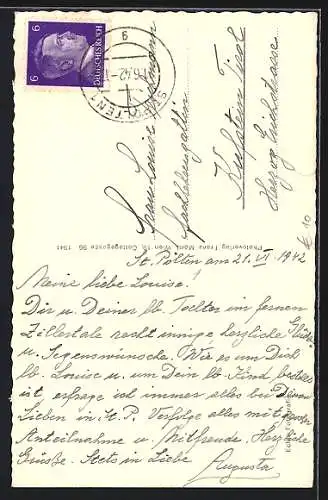 St. Pölten am 21. VI. 1942
Meine liebe Louise!
Dir u. Deiner lb. Tochter im fernen
Zillertale innige herzliche
u. Segenswünsche. Wie es um Dich
lb. Louise u. um Dein lb. Kind bestellt
ist, erfrage ich immer alles bei Deinen
Lieben in St. P. Verfolge alles mit
Anteilnahme u. Mitfreude. Herzliche
Grüße. Stets in Liebe
Augusta
Frau Louise
Kufstein Tirol
DEUTSCHES REICH
6 6
ST. PÖLTEN 1
Photoverlag Franz Mörtl, Wien 19, Cottagegasse 50 1941